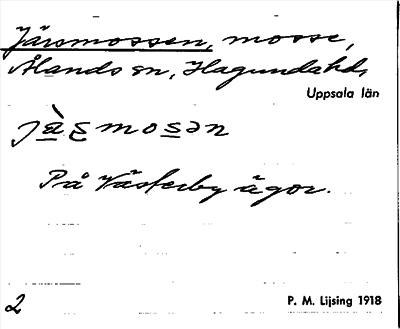 Järsmossen, mosse,
Ålands sn, Hagunda hd,
Uppsala län
jä̀s̨mosən
På Västerby ägor.
2
P. M. Lijsing 1918